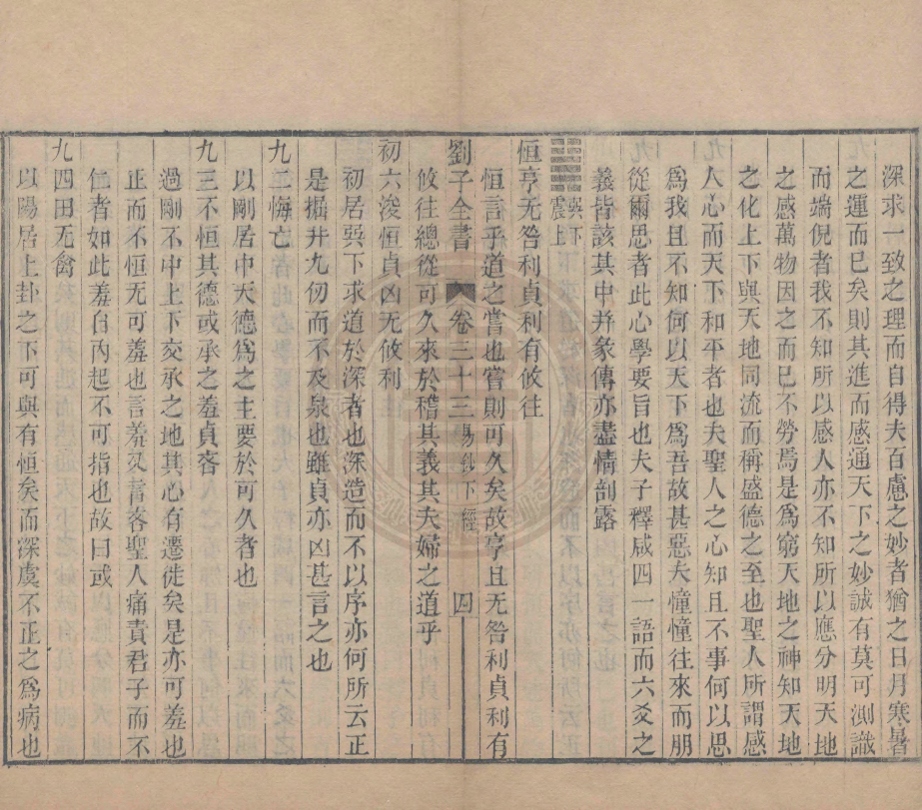 深求一致之理而自得夫百慮之妙者猶之日月寒暑
之運而已矣則其進而感通天下之妙誠有莫可測識
而端倪者我不知所以感人亦不知所以應分明天地
之感萬物因之而已不勞焉是爲窮天地之神知天地
之化上下與天地同流而稱盛德之至也聖人所謂感
人心而天下和平者也夫聖人之心知且不事何以思
爲我且不知何以天下爲吾故甚惡夫憧憧往來而朋
從爾思者此心學要旨也夫子釋咸四一語而六爻之
義皆該其中并象傳亦盡情剖露
巽下
震上
恒亨无咎利貞利有攸往
恒言乎道之嘗也嘗則可久矣故亨且无咎利貞利有
劉子全書 卷三十三 易鈔下經 四
攸往總從可久來於稽其義其夫婦之道乎
初六浚恒貞凶无攸利
初居巽下求道於深者也深造而不以序亦何所云正
是掘井九仞而不及泉也雖貞亦凶甚言之也
九二悔亡
以剛居中天德爲之主要於可久者也
九三不恒其德或承之羞貞吝
過剛不中上下交承之地其心有遷徙矣是亦可羞也
正而不恒无可羞也言羞又言吝聖人痛責君子而不
仁者如此羞自內起不可指也故曰或
九四田无禽
以陽居上卦之下可與有恒矣而深虞不正之爲病也